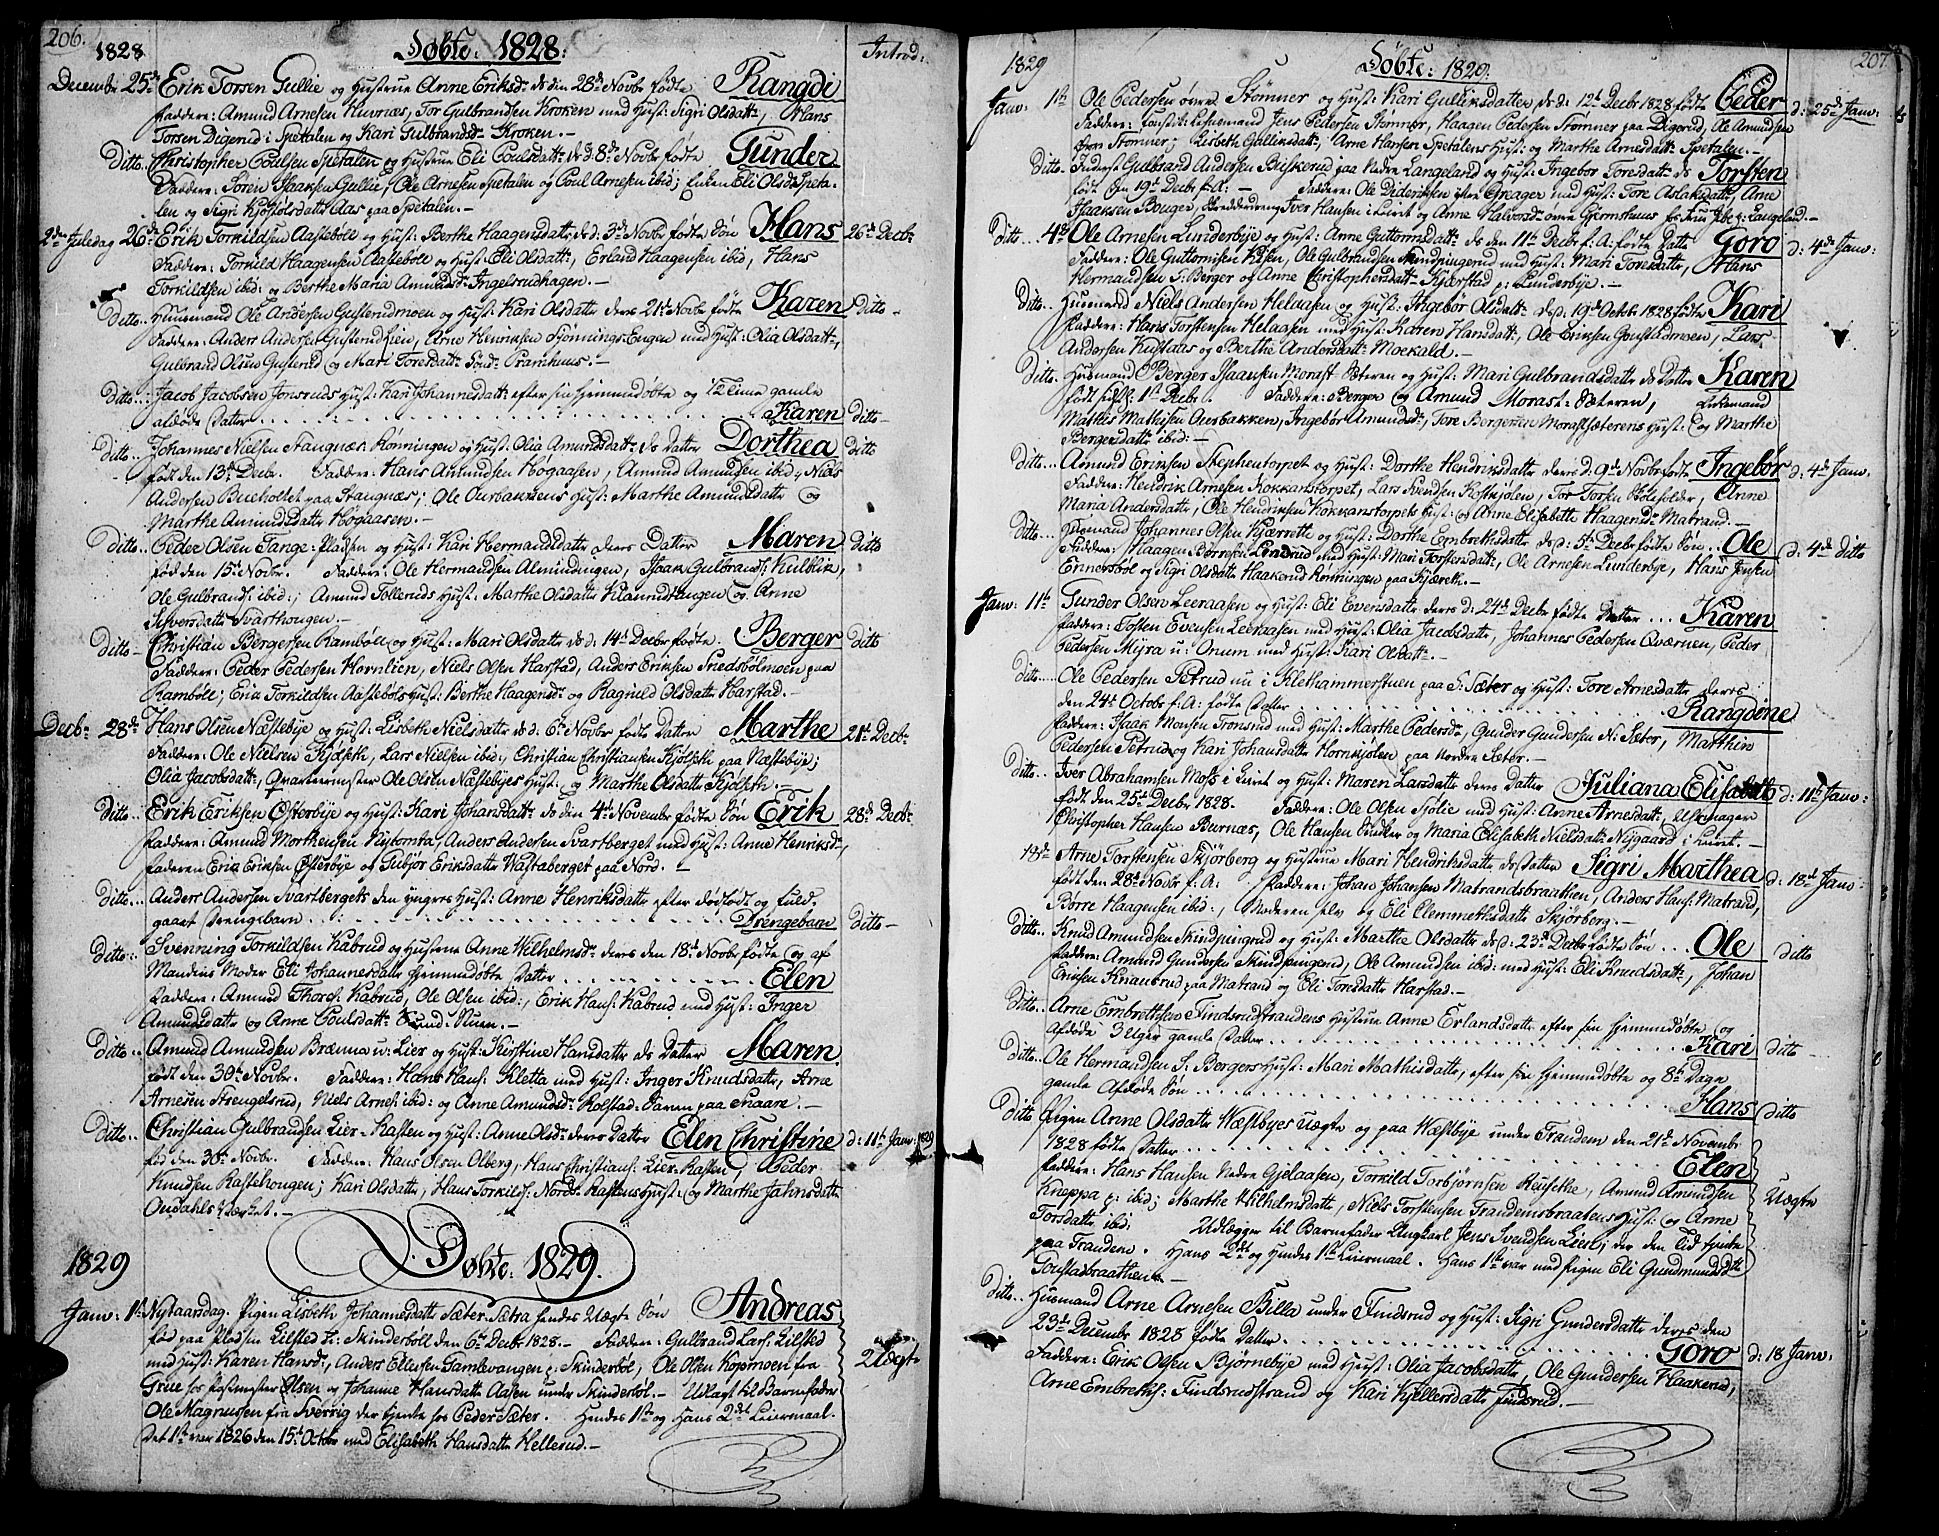 206.
1828 Døbte: 1828: Introd:
Decembr 25de Erik Torsen Gullie og Hustrue Anne Eriksdr: ds den 28de Novbr fødte Rangdi
Faddere: Amund Arnesen Hurnæs, Tor Gulbrandsen Kroken med Hust: Sigri Olsdattr, Hans
Torsen Digerud i Spetalen og Kari Gulbrandsdr Kroken.
Ditto: Christopher Poulsen Spetalen og Hustrue Eli Poulsdattr ds d: 8de Novbr fødte Gunder
Faddere: Søren Isaaksen Gullie, Ole Arnesen Spetalen og Poul Arnesen ibid; Enken Eli Olsdr Speta-
len og Sigri Kjøstolsdatter Aas paa Spetalen.
2den Juledag 26de Erik Torkildsen Aastebøle og Hust: Berthe Haagensdattr, ds d: 3de Novbr fødte Søn Hans 26de Decbr
Faddere: Torkild Haagensen Aastebøle og Hust: Eli Olsdattr, Erland Haagensen ibid, Hans
Torkildsen ibid: og Berthe Maria Amundsdr Ingelsrudhagen.
Ditto.. Huusmand Ole Andersen Gusterudmoen og Hust: Kari Olsdatter deres 21de Novbr fødte Karen Ditto
Faddere: Anders Andersen GusterudLien, Arne Henriksen Sjønnings-Eugen med Hust: Olia Olsdattr,
Gulbrand Olsen Gusterud og Mari Toresdattr Prarnhuus.
ditto.. Jacob Jacobsen Jonsruds Hust: Kari Johannesdattr efter sin Hjemmedøbte og 12 Time gamle
afdøde Datter . . . Karen ditto
ditto.. Johannes Nielsen Stangnæs Rønningen og Hust: Olia Amundsdattr ds Datter Dorthea ditto
født den 13de Decbr. Faddere: Hans Amundsen Høgaasen, Amund Amundsen ibid; Niels
Andersen Bucholtet paa Stangnæs; Ole Ourbakkens Hust: Marthe Amundsdattr og
Marthe Amundsdattr Høgaasen.
ditto.. Peder Olsen Tange-Pladsen og Hust: Kari Hermandsdatter deres Datter Maren ditto
født den 15de Novbr. Faddere: Ole Hermandsen Almindingen, Isaak Gulbrands: Kulblik,
Ole Gulbrands: ibid:; Amund Tolleruds Hust: Marthe Olsdatter og Anne
Sifversdatter Svarthougen.
ditto. Christian Bergersen Rambøl og Hust: Mari Olsdatter ds d: 14de Decbr fødte Berger ditto
Faddere: Peder Pedersen Hornlien, Niels Olsen Harstad, Anders Eriksen Snedsbølmoen paa
Rambøle; Erik Torkildsen Aastebøls Hust: Berthe Haagensdr og Ragnild Olsdattr Harstad.
Decbr 28de Hans Olsen Næstebye og Hust: Lisbeth Nielsdatter ds d. 6te Novbr født Datter Marthe 28de Decbr
Faddere: Ole Nielsen Kjølseth, Lars Nielsen ibid:, Christian Christiansen Kjølseth paa Næstebye;
Olia Jacobsdattr, Ole Olsen Næstebyes Hust: og Marthe Olsdattr Kjølseth.
ditto.. Erik Eriksen Østerbye og Hust: Kari Johansdattr ds den 4de Novembr fødte Søn Erik 28de Decbr
Faddere: Amund Morthensen Nystomta, Anders Andersen Svartberget med Hust: Anne Henriksdr,
Faderen Erik Eriksen Østerbye og Gubjør Eriksdattr Wastaberget paa Nord.
ditto... Anders Andersen Svartbergets den yngres Hust: Anne Henriksdatter efter dødfødt og fuld-
gaaet Drengebarn . . . Drengebarn ditto
ditto.. Svenning Torkildsen Kabrud og Hustrue Anne Wilhelmsdr deres den 18de Novbr fødte og af
Mandens Moder Eli Johannesdatter Hjemmedøbte Datter . . . Elen
Faddere: Amund Thores: Kabrud, Ole Olsen ibid:, Erik Hans: Kabrud med Hust: Inger
Amundsdattr og Anne Poulsdattr
Ditto.. Amund Amundsen Brænna u: Lier og Hust: Kirstine Hansdatter ds Datter Maren
født den 30te Novbr. Faddere: Hans Hans: Kletta med Hust: Inger Knudsdattr, Arne
Arnesen Strengelsrud, Niels Arnes: ibid: og Anne Amundsdr Kolstad-Daren paa Snaare.
ditto.. Christian Gulbrandsen Lier-Kasten og Hust: Anne Olsdr deres Datter Elen Christine d: 11te Janr: 1829
fød den 30te Novbr. Faddere: Hans Olsen Olberg, Hans Christians: Lier-Kasten, Peder
Knudsen Rastehougen; Kari Olsdatter, Hans Torkilds: Nords Rastens Hust: og Marthe Jahnsdattr
Oudahls Værket.
1829 Døbte: 1829.
Janr: 1ste Nytaarsdag. Pigen Lisbeth Johannesdattr Sæter-Sætra hendes Uægte Søn Andreas
fød paa Pladsen Lilsted u: Skinderboll den 6te Decbr 1828. Faddere: Gulbrand Lars: Lilsted
med Hust: Karen Hansdr, Anders Ellesen Gamlevangen p: Skinderbøl, Ole Olsen Kopmoen fra
Grue hos Postmester Olsen og Johanne Hansdattr Aasen under Skinderbøl. Udlagt til Barnefader
Ole Magnussen fra Sverrig der tjente hos Peder Sæter. Hendes 1ste og Hans 2det Leiermaal.
Det 1ste var 1826 den 15de Octbr med Elisabeth Hansdatter Hellerud.
Uægte
207.
1829 Døbte: 1829.
Janr: 1ste Ole Pedersen øvre Stømner og Hust: Kari Gulliksdatter ds d: 12te Decbr 1828 født Peder d: 25de Janr:
Faddere: Jens Pedersen Stømner, Haagen Pedersen Stømner paa Digerud, Ole Amundsen
øvre Stømner; Lisbeth Gulliksdattr, Arne Hansen Spetalens Hust: og Marthe Arnesdattr Spetalen.
Ditto. Inderst Gulbrand Andersen Buskerud paa Nedre Langeland og Hust: Ingebor Toresdattr ds Torsten
født den 19de Decbr f: A: Faddere: Ole Didriksen øvre Greager med Hust: Tore Aslaksdattr, Arne
Isaaksen Bouger, Iver Hansen i Leiret og Anne Halvorsdr øvre Gjermshuus Langeland.
Ditto. 4de Ole Arnesen Lunderbye og Hust: Anne Guttormsdattr ds den 11te Decbr f: A: fødte Datter Goro d: 4de Janr:
Faddere: Ole Guttormsen Kiisen, Ole Gulbrandsen Skindpingerud med Hust: Mari Toresdattr, Hans
Hermandsen S: Berger og Anne Christophersdattr Kjærstad p: Lunderbye.
Ditto. Huusmand Niels Andersen Helaasen og Hust: Ingebør Olsdattr ds d: 19de Octobr 1828 fødte Kari
Faddere: Hans Torstensen Helaasen med Hust: Karen Hansdattr, Ole Eriksen Goustadmoen, Lars
Andersen Kuslaas og Berthe Andersdattr Moekald.
Ditto. Husmand Berger Isaaksen Morast-Sæteren og Hust: Mari Gulbrandsdatter ds Datter Karen
født sidstl: 1ste Decbr. Faddere: Bergen og Amund Morast-Sæteren, Enkemand
Mathis Mathisen Ourbakken, Ingebør Amundsdr, Tore Bergersen Morastsæterens Hust: og Marthe
Bergersdatter ibid:
Ditto... Amund Eriksen Stephentorpet og Hust: Dorthe Hendriksdatter deres d: 9de Novbr født Ingebør d: 4de Janr
Faddere: Hendrik Arnesen Kokkanstorpet, Lars Svendsen Koskjølen, Tor Torsen, Anne
Maria Andersdatter, Ole Hendriksen Kokkanstorpets Hust: og Anne Elisabeth Haagensdr Matrand.
Ditto. Husmand Johannes Olsen Kjærrette og Hust: Dorthe Embrethsdatter ds d: 5te Decbr fødte Søn .. Ole d: 4de ditto
Faddere: Haagen Børresen Lundrud med Hust: Mari Torstensdattr, Ole Arnesen Lunderbye, Hans Jensen
Ennersbøl og Sigri Olsdattr Haakerud Rønningen paa Kjæreth.
Janr: 11te Gunder Olsen Leeraasen og Hust: Eli Evensdatter deres d: 24de Decbr fødte Datter ... Karen
Faddere: Tosten Evensen Leeraasen med Hust: Olia Jacobsdattr, Johannes Pedersen Qværnen, Peder
Pedersen Myra u: Onum med Hust: Kari Olsdattr.
Ditto..... Ole Pedersen Petrud nu i Klethammerstuen paa S: Sæter og Hust: Tore Arnesdattr deres
den 24de Octobr f: A: fødte Datter . . . Rangdine
Faddere: Isaak Monsen Tronsrud med Hust: Marthe Pedersdr, Gunder Gundersen N: Sæter, Marthin
Pedersen Petrud og Kari Johansdatter Hornkjølen paa Nordre Sæter.
Ditto.. Iver Abrahamsen Moss i Leiret og Hust: Maren Larsdatter deres Datter Juliana Elisabeth d: 11te Janr:
født den 25de Decbr 1828. Faddere: Ole Olsen Sjølie med Hust: Anne Arnesdattr, Uhrmager
Christopher Hansen Burnæs, Ole Hansen og Maria Elisabeth Nielsdattr Nygaard i Leiret.
18de Arne Torstensen Skjørberg og Hustrue Mari Hendriksdatter ds Datter Sigri Marthea d: 18de Janr:
født den 28de Novbr f: A: Faddere: Johan Johansen Matrandsbraathen, Anders Hans: Matrand,
Børre Haagensen ibid:, Moderen selv og Eli Clemmethsdattr Skjørberg.
Ditto.. Knud Amundsen Skindpingrud og Hust: Marthe Olsdatter ds d: 23de Decbr fødte Søn ... Ole ditto
Faddere: Amund Gundersen Skindpingerud, Ole Amundsen ibid: med Hust: Eli Knudsdattr, Johan
Eriksen Knausrud paa Matrand og Eli Toresdattr Harstad.
Ditto.. Arne Embrethsen Findsrudstrandens Hustrue Anne Erlandsdattr efter sin Hjemmedøbte og
afdøde 3 Uger gamle Datter . . . Kari ditto
Ditto. Ole Hermandsen S: Bergers Hust: Mari Mathisdattr, efter sin Hjemmedøbte og 8te Dage
gamle Afdøde Søn . . . Hans ditto
Ditto Pigen Anne Olsdattr Wæstbyes Uægte og paa Wæstbye under Trandem den 21de Novembr
1828 fødte Datter . . . Elen
Faddere: Hans Hansen Nedre Gjelaasen, Torkild Torbjørnsen Reusethe, Amund Amundsen
Kneppa p: ibid; Marthe Wilhelmsdattr, Niels Torstensen Trandemsbraatens Hust: og Anne
Torsdattr ibid: Udlægger til Barnefader Ungkarl Jens Svendsen Lier; der den Tid tjente
paa Trandem. Hans 2det og Hendes 1ste Leiermaal. Hans 1ste var med Pigen Eli Gundmundsdr
Goustadbraathen.
Uægte
Ditto.. Husmand Arne Arnesen Billa under Findsrud og Hust: Sigri Gundersdatter deres den
23de Decembr 1828 fødte Datter . . . Goro d: 18 Janr:
Faddere: Erik Olsen Bjørnebye med Hust: Olia Jacobsdattr, Ole Gundersen Haakerud,
Arne Embreths: Findsrudstrand og Kari Kjellersdattr Findsrud.